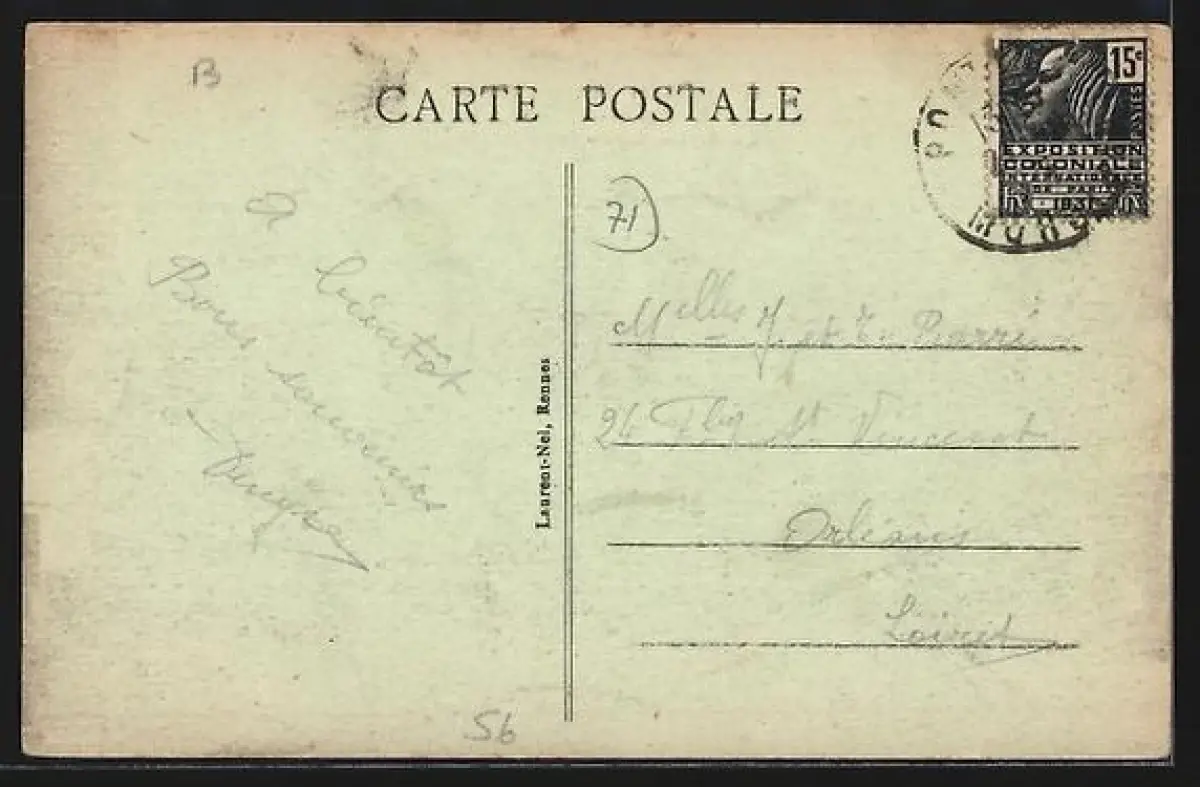 B
CARTE POSTALE
15c
POSTES
EXPOSITION
COLONIALE
INTERNATIONALE
DE PARIS
1931
71
A
bientôt
Bons souvenirs
Laurent-Nel, Rennes
Melles J. et
St. Vincent
Orléans
Loiret
56